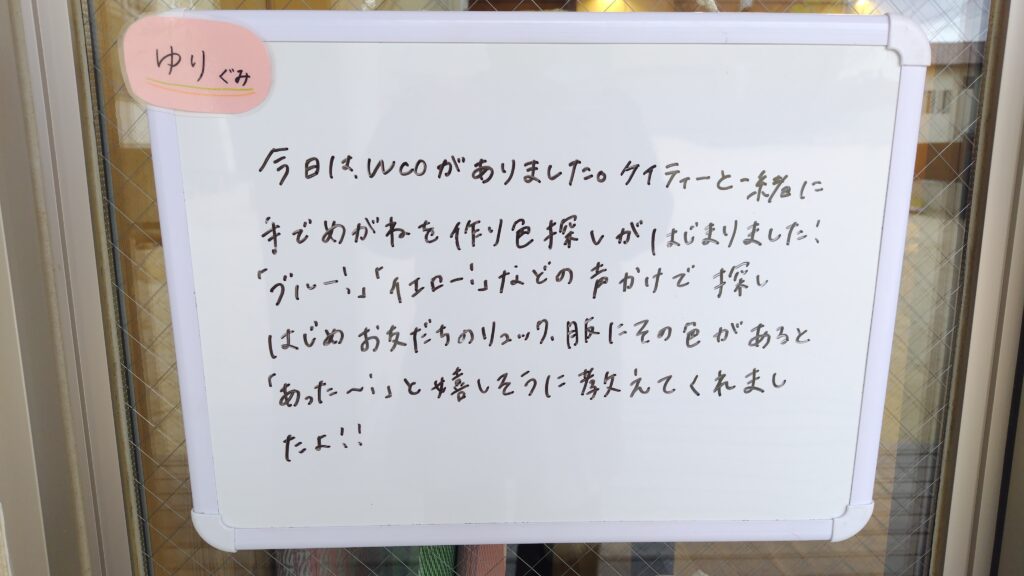 ゆりぐみ
今日は、WCOがありました。ケイティーと一緒に
手でめがねを作り色探しがはじまりました!
「ブルー!」「イエロー!」などの声かけで探し
はじめお友だちのリュック、服にその色があると
「あった〜!」と嬉しそうに教えてくれまし
たよ!!